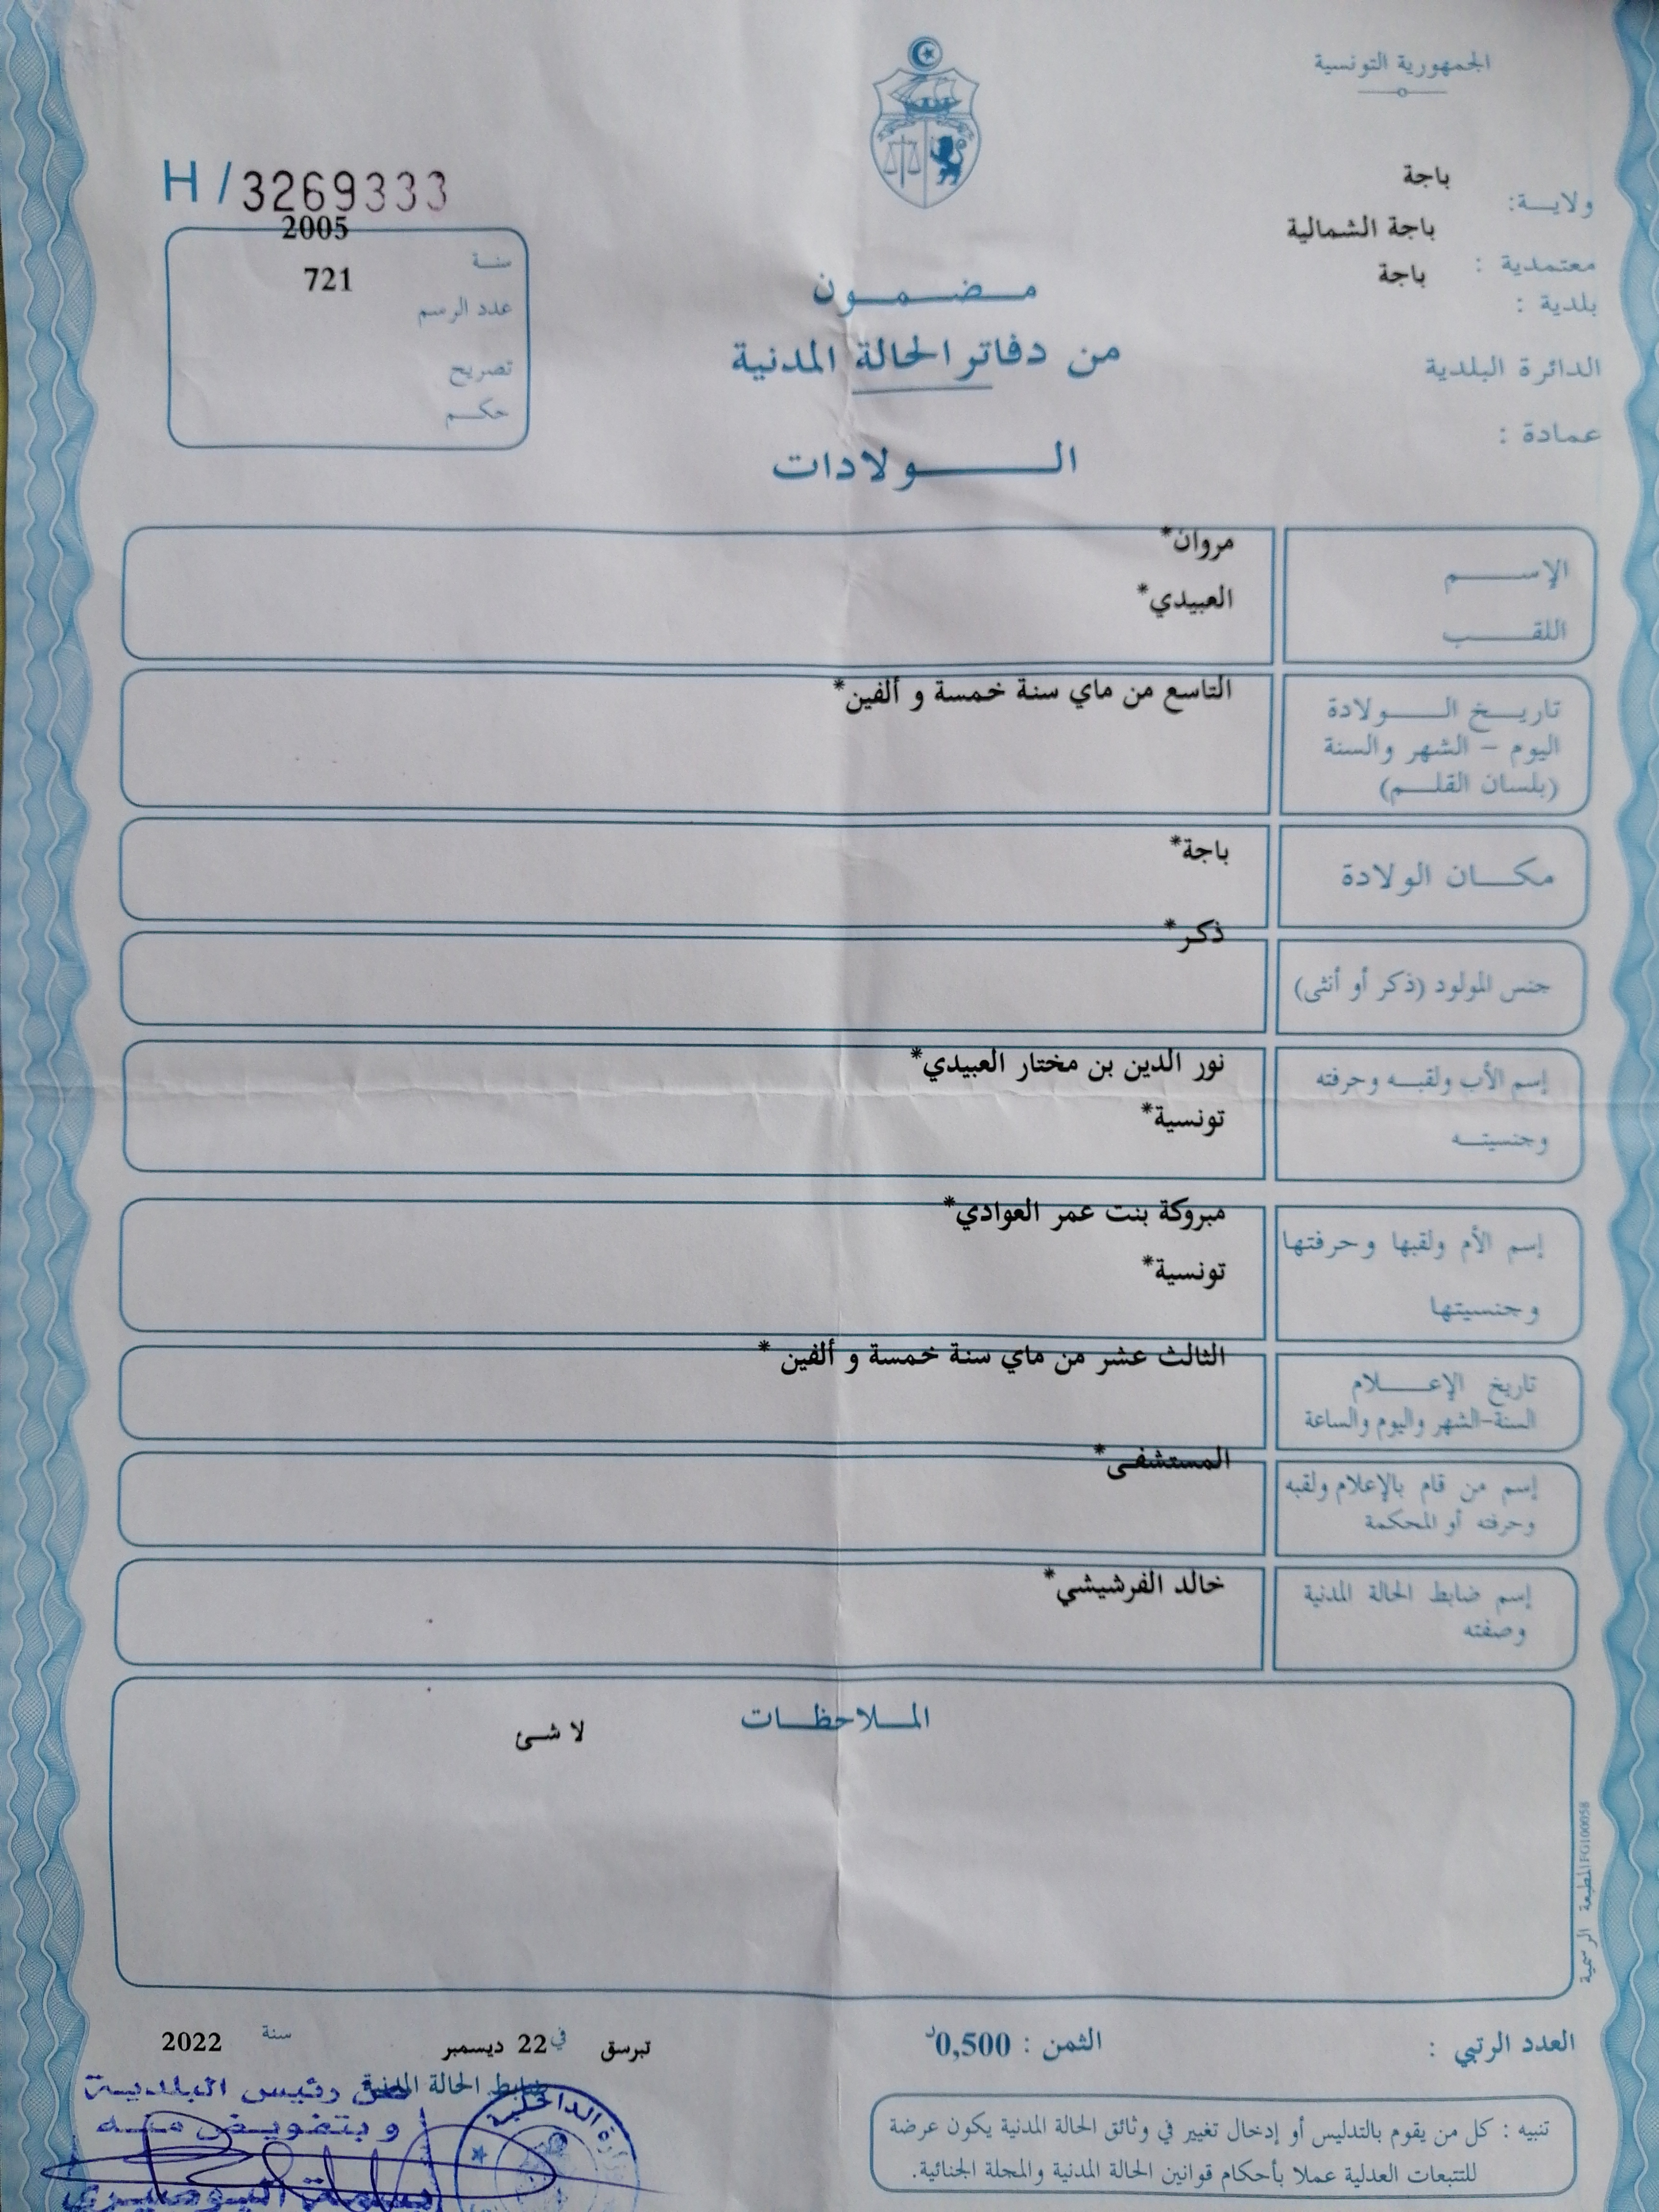 الجمهورية التونسية
ولاية: باجة
معتمدية : باجة الشمالية
بلدية : باجة
الدائرة البلدية
عمادة :
H / 3269333
سنة 2005
عدد الرسم 721
تصريح
حكم
مضمون
من دفاتر الحالة المدنية
الولادات
الإسم مروان*
اللقب العبيدي*
تاريخ الولادة التاسع من ماي سنة خمسة و ألفين*
اليوم - الشهر والسنة
(بلسان القلم)
مكان الولادة باجة*
جنس المولود (ذكر أو أنثى) ذكر*
إسم الأب ولقبه وحرفته نور الدين بن مختار العبيدي*
وجنسيته تونسية*
إسم الأم ولقبها وحرفتها مبروكة بنت عمر العوادي*
وجنسيتها تونسية*
تاريخ الإعلام الثالث عشر من ماي سنة خمسة و ألفين *
السنة-الشهر واليوم والساعة
إسم من قام بالإعلام ولقبه المستشفى*
وحرفته أو المحكمة
إسم ضابط الحالة المدنية خالد الفرشيشي*
وصفته
الملاحظات
لا شئ
المطبعة الرسمية FG100058
العدد الرتبي :
الثمن : 0,500د
تبرسق في 22 ديسمبر سنة 2022
ضابط الحالة المدنية
عن رئيس البلدية
و بتفويض منه
الداخلية
تنبيه : كل من يقوم بالتدليس أو إدخال تغيير في وثائق الحالة المدنية يكون عرضة
للتتبعات العدلية عملا بأحكام قوانين الحالة المدنية والمجلة الجنائية.